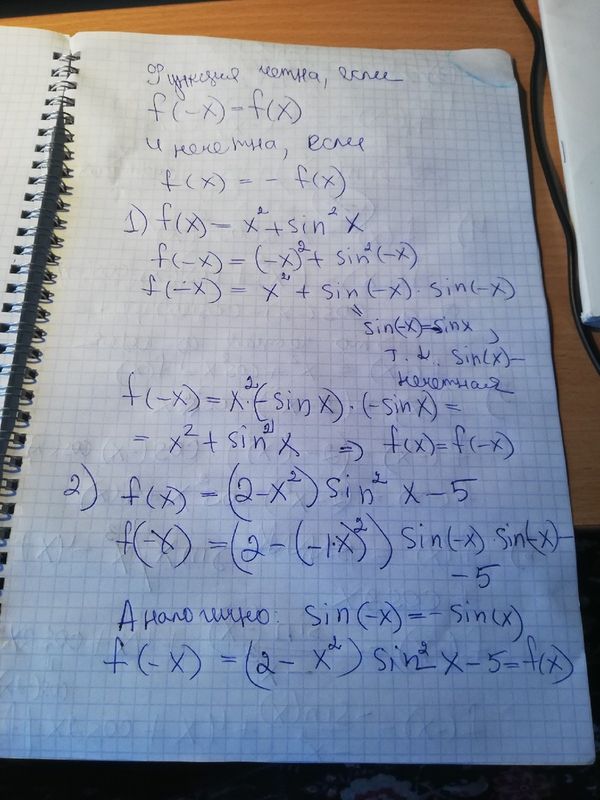 Функция четна, если
f(-x)=f(x)
и нечетна, если
f(x) = - f(x)
1) f(x) = x² + sin² x
f(-x) = (-x)² + sin²(-x)
f(-x) = x² + sin(-x)·sin(-x)
sin(-x)=-sinx,
т.к. sin(x)-
нечетная
f(-x) = x²·(-sin x)·(-sin x) =
= x² + sin² x ⇒ f(x)=f(-x)
2) f(x) = (2-x²) sin² x - 5
f(-x) = (2-(-1·x)²) sin(-x) sin(-x)-
-5
Аналогично: sin(-x) = - sin(x)
f(-x) = (2 - x²) sin² x - 5 = f(x)